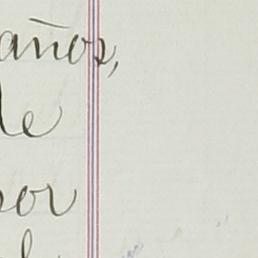 años,
de
por